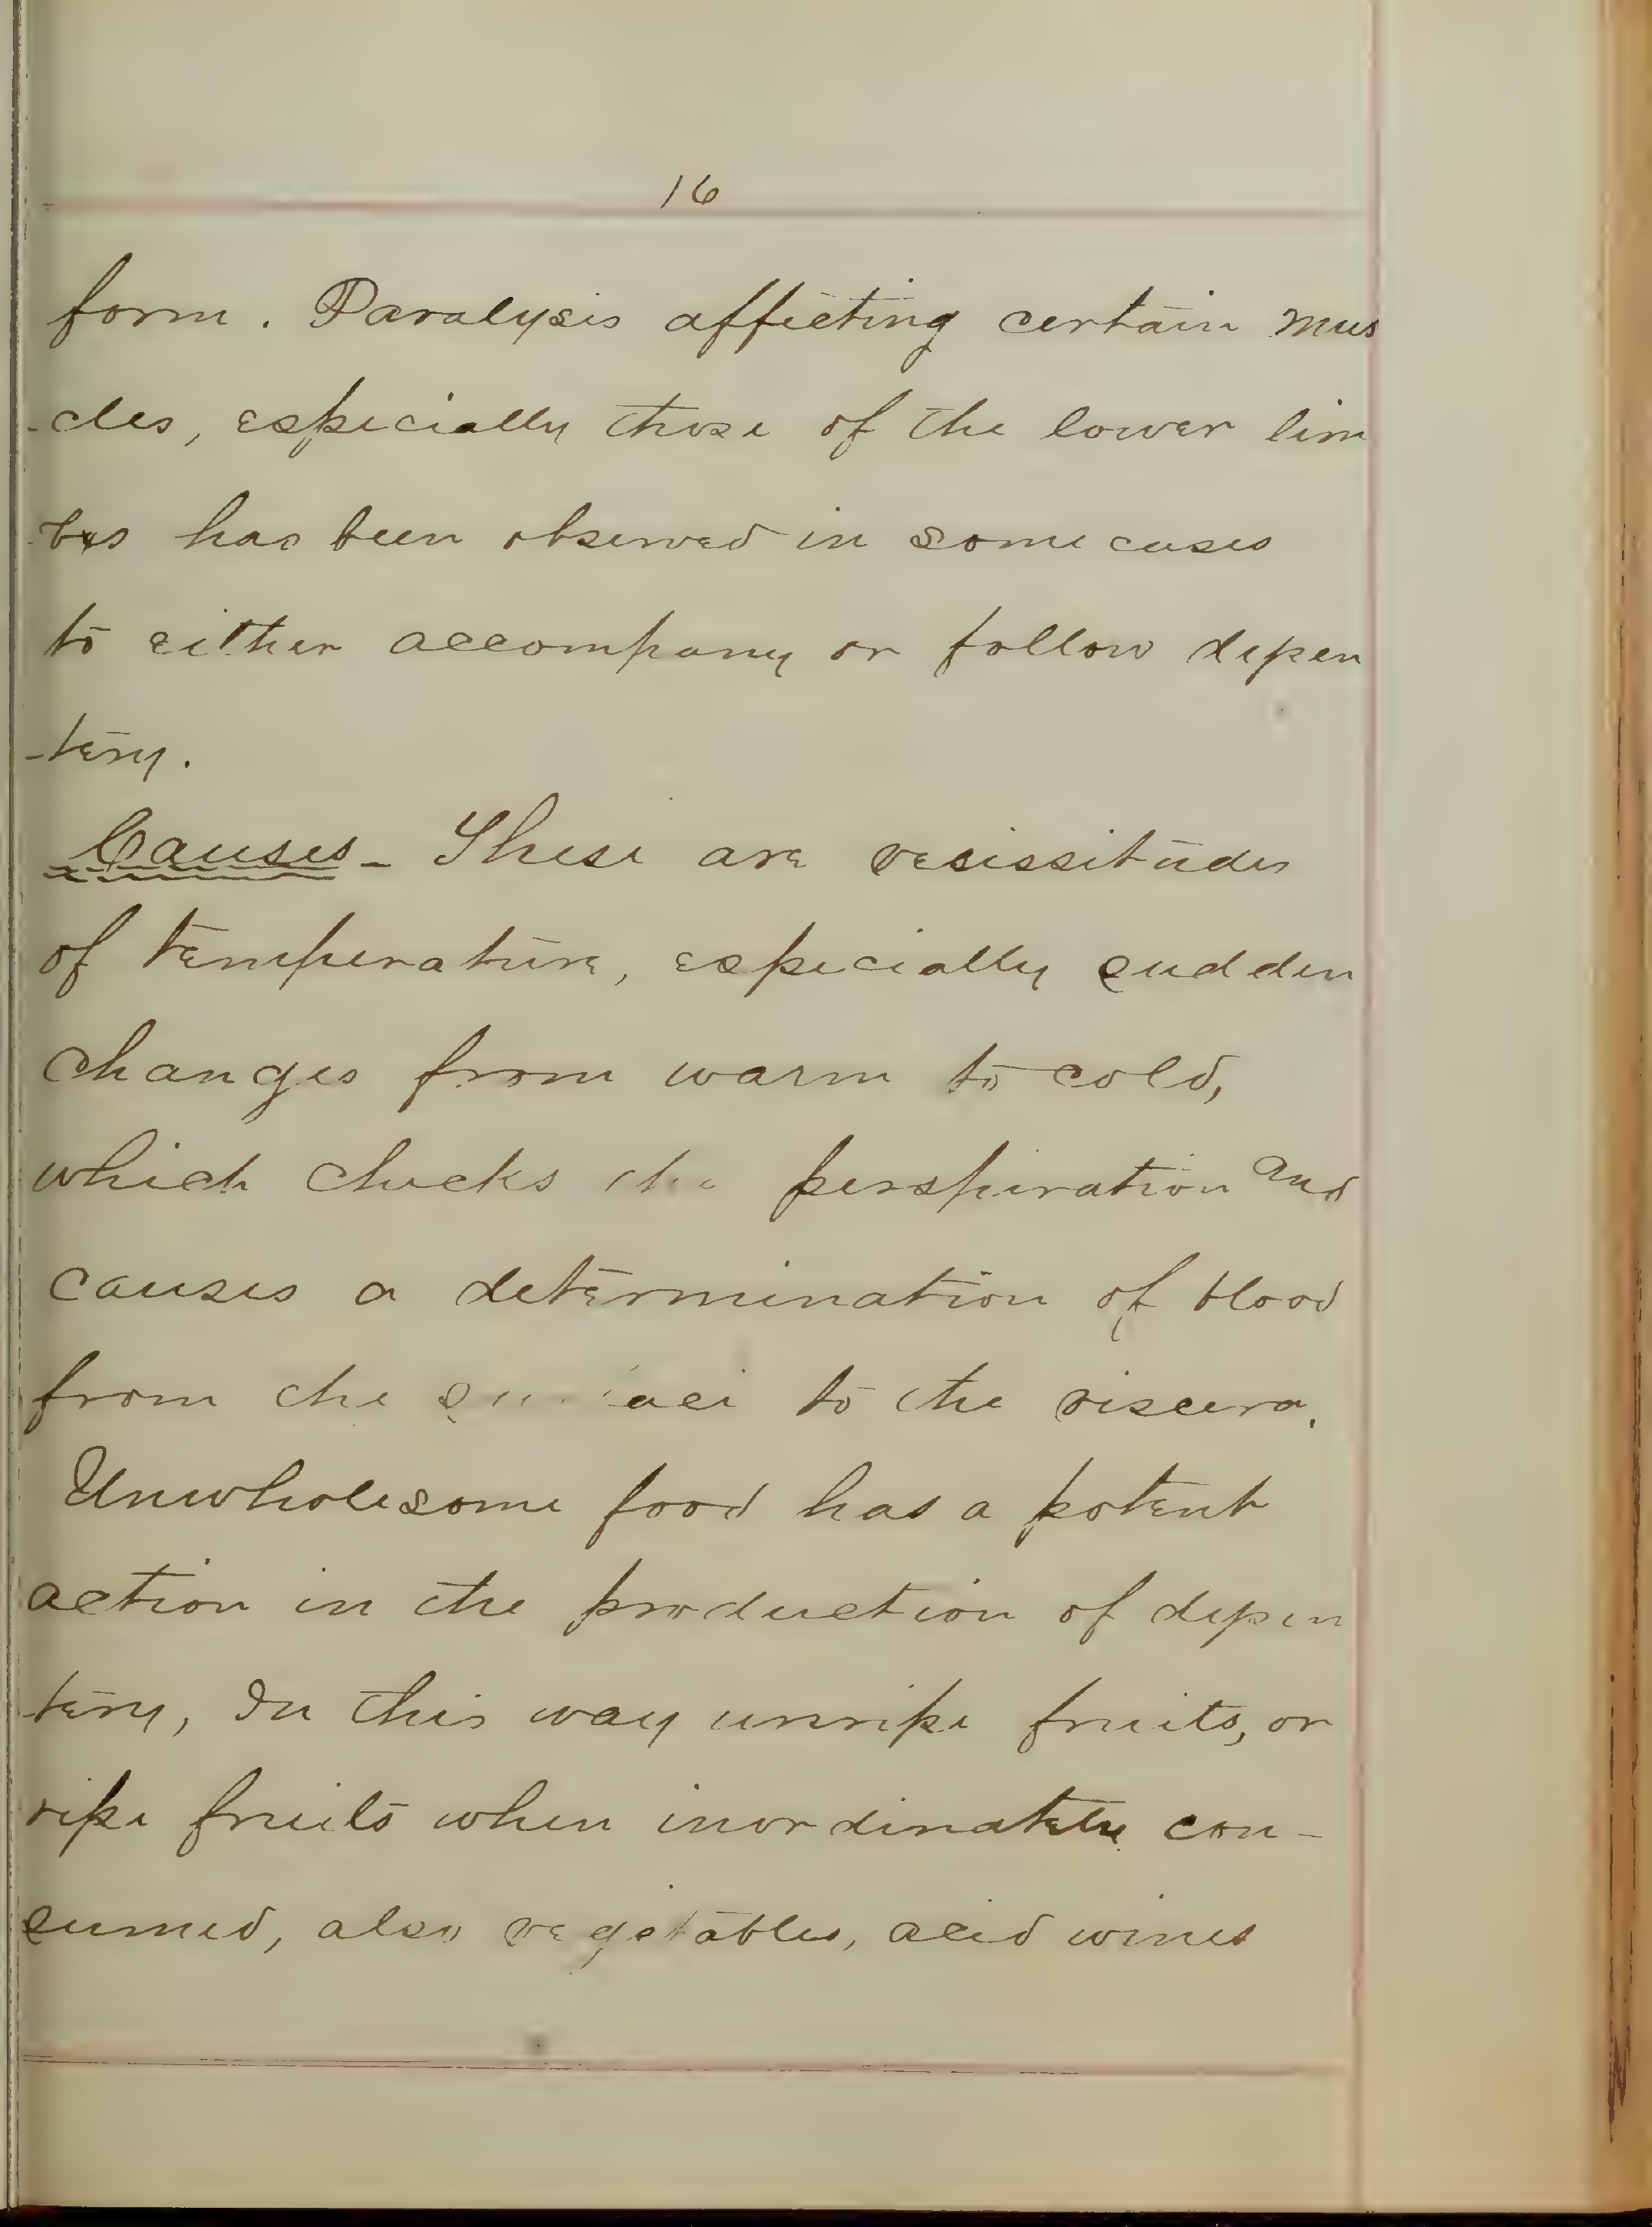 16
form. Paralysis affecting certain mus
-cles, especially those of the lower lim
-bs has been observed in some cases
to either accompany or follow dysen
-tery.
Causes - These are vesissitudes
of temperature, especially sudden
changes from warm to cold,
which checks the perspiration and
causes a determination of blood
from the surface to the viscera.
Unwholesome food has a potent
action in the production of dysen
-tery, In this way unripe fruits, or
ripe fruits when inordinately con-
sumed, also vegetables, acid wines